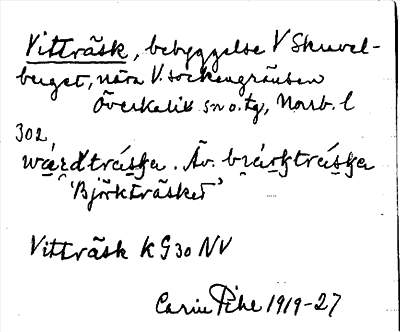 Vitträsk, bebyggelse V Skruvel-
berget, nära V. sockengränsen
Överkalix sn o. tg, Norrb. l
302
wœrdtráska. Äv. bi̯ár̥ktráska
'Björkträsket'
Vitträsk K G 30 NV
Carin Pihl 1919-27